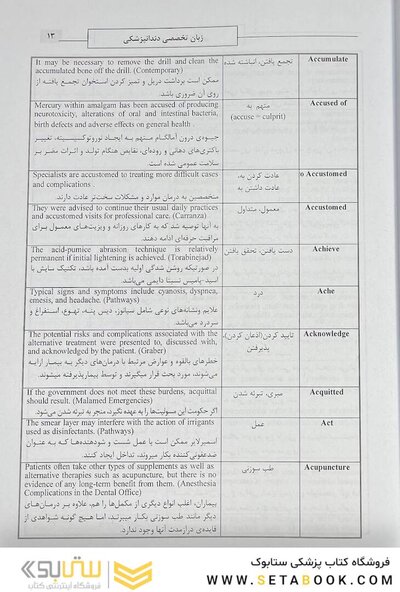 زبان تخصصی دندانپزشکی
۱۳
It may be necessary to remove the drill and clean the
accumulated bone off the drill. (Contemporary)
ممکن است برداشت دریل و تمیز کردن استخوان تجمع یافته از
روی آن ضروری باشد.
تجمع یافتن، انباشته شده
Accumulate
Mercury within amalgam has been accused of producing
neurotoxicity, alterations of oral and intestinal bacteria,
birth defects and adverse effects on general health .
جیوه‌ی درون آمالگام متهم به ایجاد نوروتوکسیسیته، تغییر
باکتری‌های دهانی و روده‌ای، نقایص هنگام تولد و اثرات مضر بر
سلامت عمومی شده است.
متهم به
(accuse = culprit)
Accused of
Specialists are accustomed to treating more difficult cases
and complications .
متخصصین به درمان موارد و مشکلات سخت‌تر عادت دارند.
عادت کردن به،
عادت داشتن به
o Accustomed
They were advised to continue their usual daily practices
and accustomed visits for professional care. (Carranza)
به آنها توصیه شد که به کارهای روزانه و ویزیت‌های معمول برای
مراقبت حرفه‌ای ادامه دهند.
معمول، متداول
Accustomed
The acid-pumice abrasion technique is relatively
permanent if initial lightening is achieved. (Torabinejad)
در صورتیکه روشن شدگی اولیه بدست آمده باشد، تکنیک سایش با
اسید-پامیس نسبتا دایمی می‌باشد.
دست یافتن، تحقق یافتن
Achieve
Typical signs and symptoms include cyanosis, dyspnea,
emesis, and headache. (Pathways)
علایم ونشانه‌های نوعی شامل سیانوز، دیس پنه، تهوع، استفراغ و
سردرد می‌باشد.
درد
Ache
The potential risks and complications associated with the
alternative treatment were presented to, discussed with,
and acknowledged by the patient. (Graber)
خطرهای بالقوه و عوارض مرتبط با درمان‌های دیگر به بیمار ارایه
می‌شوند، مورد بحث قرار میگیرند و توسط بیمارپذیرفته میشوند.
تایید کردن(اذعان کردن)،
پذیرفتن
Acknowledge
If the government does not meet these burdens, acquittal
should result. (Malamed Emergencies)
اگر حکومت این مسولیت‌ها را به عهده نگیرد، منجر به تبرئه شدن می‌شود.
مبری، تبرئه شدن
Acquitted
The smear layer may interfere with the action of irrigants
used as disinfectants. (Pathways)
اسمیرلایر ممکن است با عمل شست و شودهنده‌ها که به عنوان
ضدعفونی کننده بکار میروند، تداخل ایجاد کنند
عمل
Act
Patients often take other types of supplements as well as
alternative therapies such as acupuncture, but there is no
evidence of any long-term benefit from them. (Anesthesia
Complications in the Dental Office)
بیماران، اغلب انواع دیگری از مکمل‌ها را هم، علاوه بر درمان‌های
دیگر مانند طب سوزنی بکار میبرند، اما هیچ گونه شواهدی از
فایده‌ی درازمدت آنها وجود ندارد.
طب سوزنی
Acupuncture
فروشگاه کتاب پزشکی ستابوک
WWW.SETABOOK.COM
ستابوک
فروشگاه اینترنتی کتاب